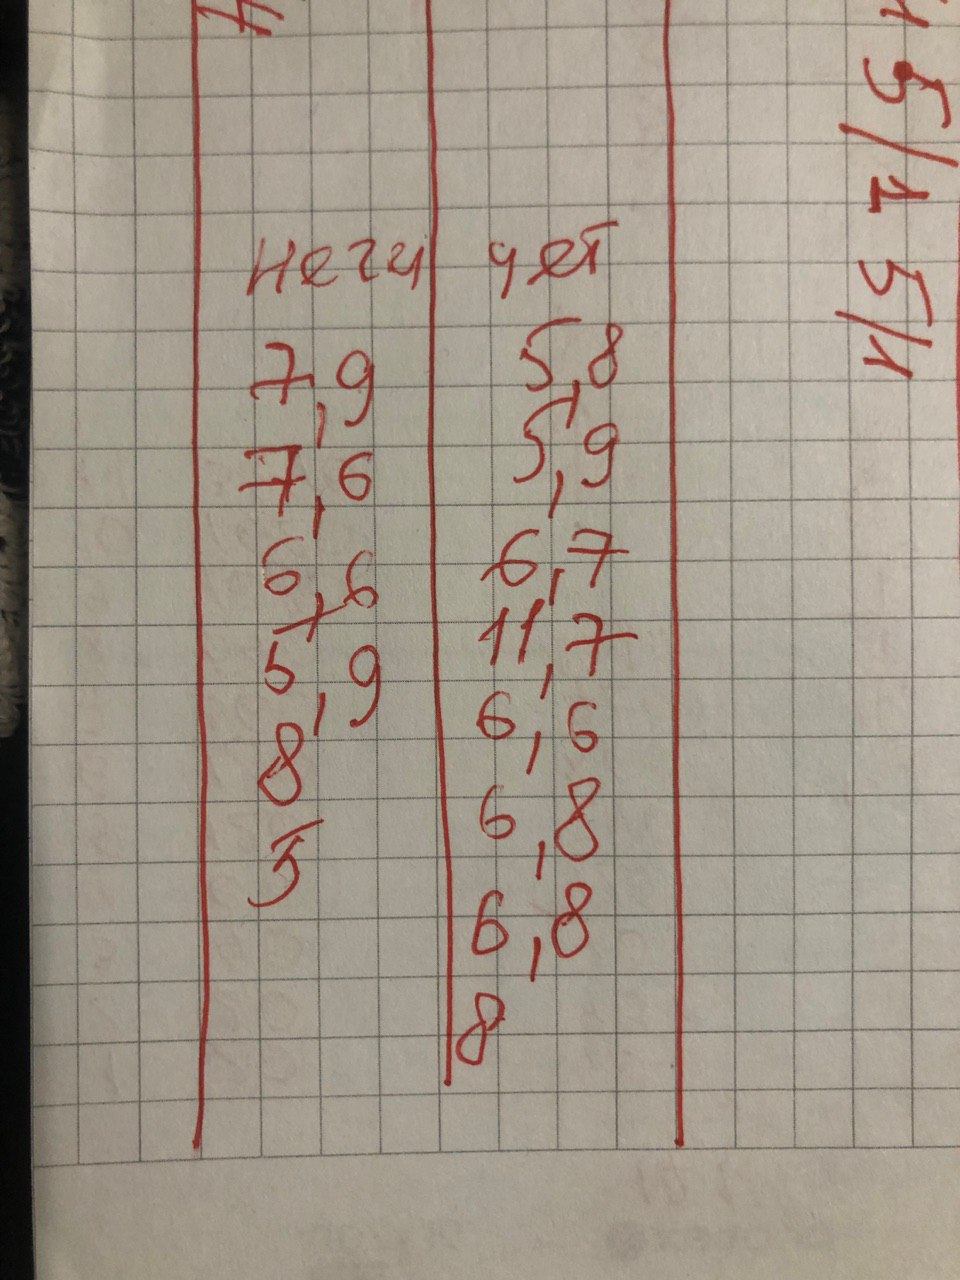 нечч чет
7,9 5,8
7,6 5,9
6,6 6,7
5,9 11,7
8 6,6
5 6,8
6,8
8
5/1 5/1